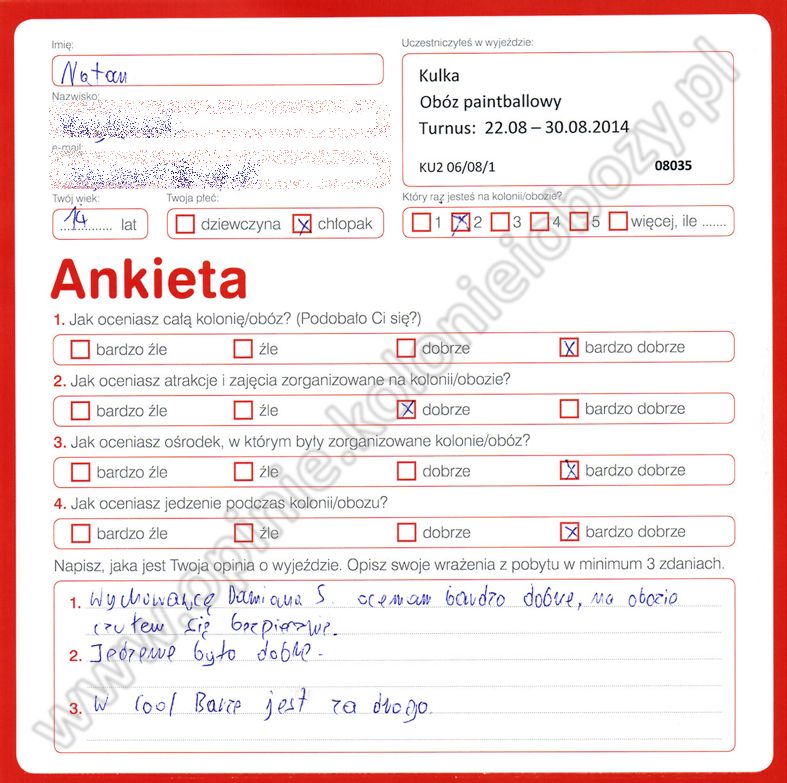 Imię:
Natan
Nazwisko:
e-mail:
Twój wiek:
14 lat
Twoja płeć:
dziewczyna x chłopak
Uczestniczyłeś w wyjeździe:
Kulka
Obóz paintballowy
Turnus: 22.08 – 30.08.2014
KU2 06/08/1 08035
Który raz jesteś na kolonii/obozie?
1 x 2 3 4 5 więcej, ile .......
Ankieta
1. Jak oceniasz całą kolonię/obóz? (Podobało Ci się?)
bardzo źle źle dobrze x bardzo dobrze
2. Jak oceniasz atrakcje i zajęcia zorganizowane na kolonii/obozie?
bardzo źle źle x dobrze bardzo dobrze
3. Jak oceniasz ośrodek, w którym były zorganizowane kolonie/obóz?
bardzo źle źle dobrze x bardzo dobrze
4. Jak oceniasz jedzenie podczas kolonii/obozu?
bardzo źle źle dobrze x bardzo dobrze
Napisz, jaka jest Twoja opinia o wyjeździe. Opisz swoje wrażenia z pobytu w minimum 3 zdaniach.
1. Wychowawcę Damiana S. oceniam bardzo dobrze, na obozie
czułem się bezpiecznie.
2. Jedzenie było dobre.
3. W Cool Barze jest za drogo.
www.opinie.kolonieiobozy.pl